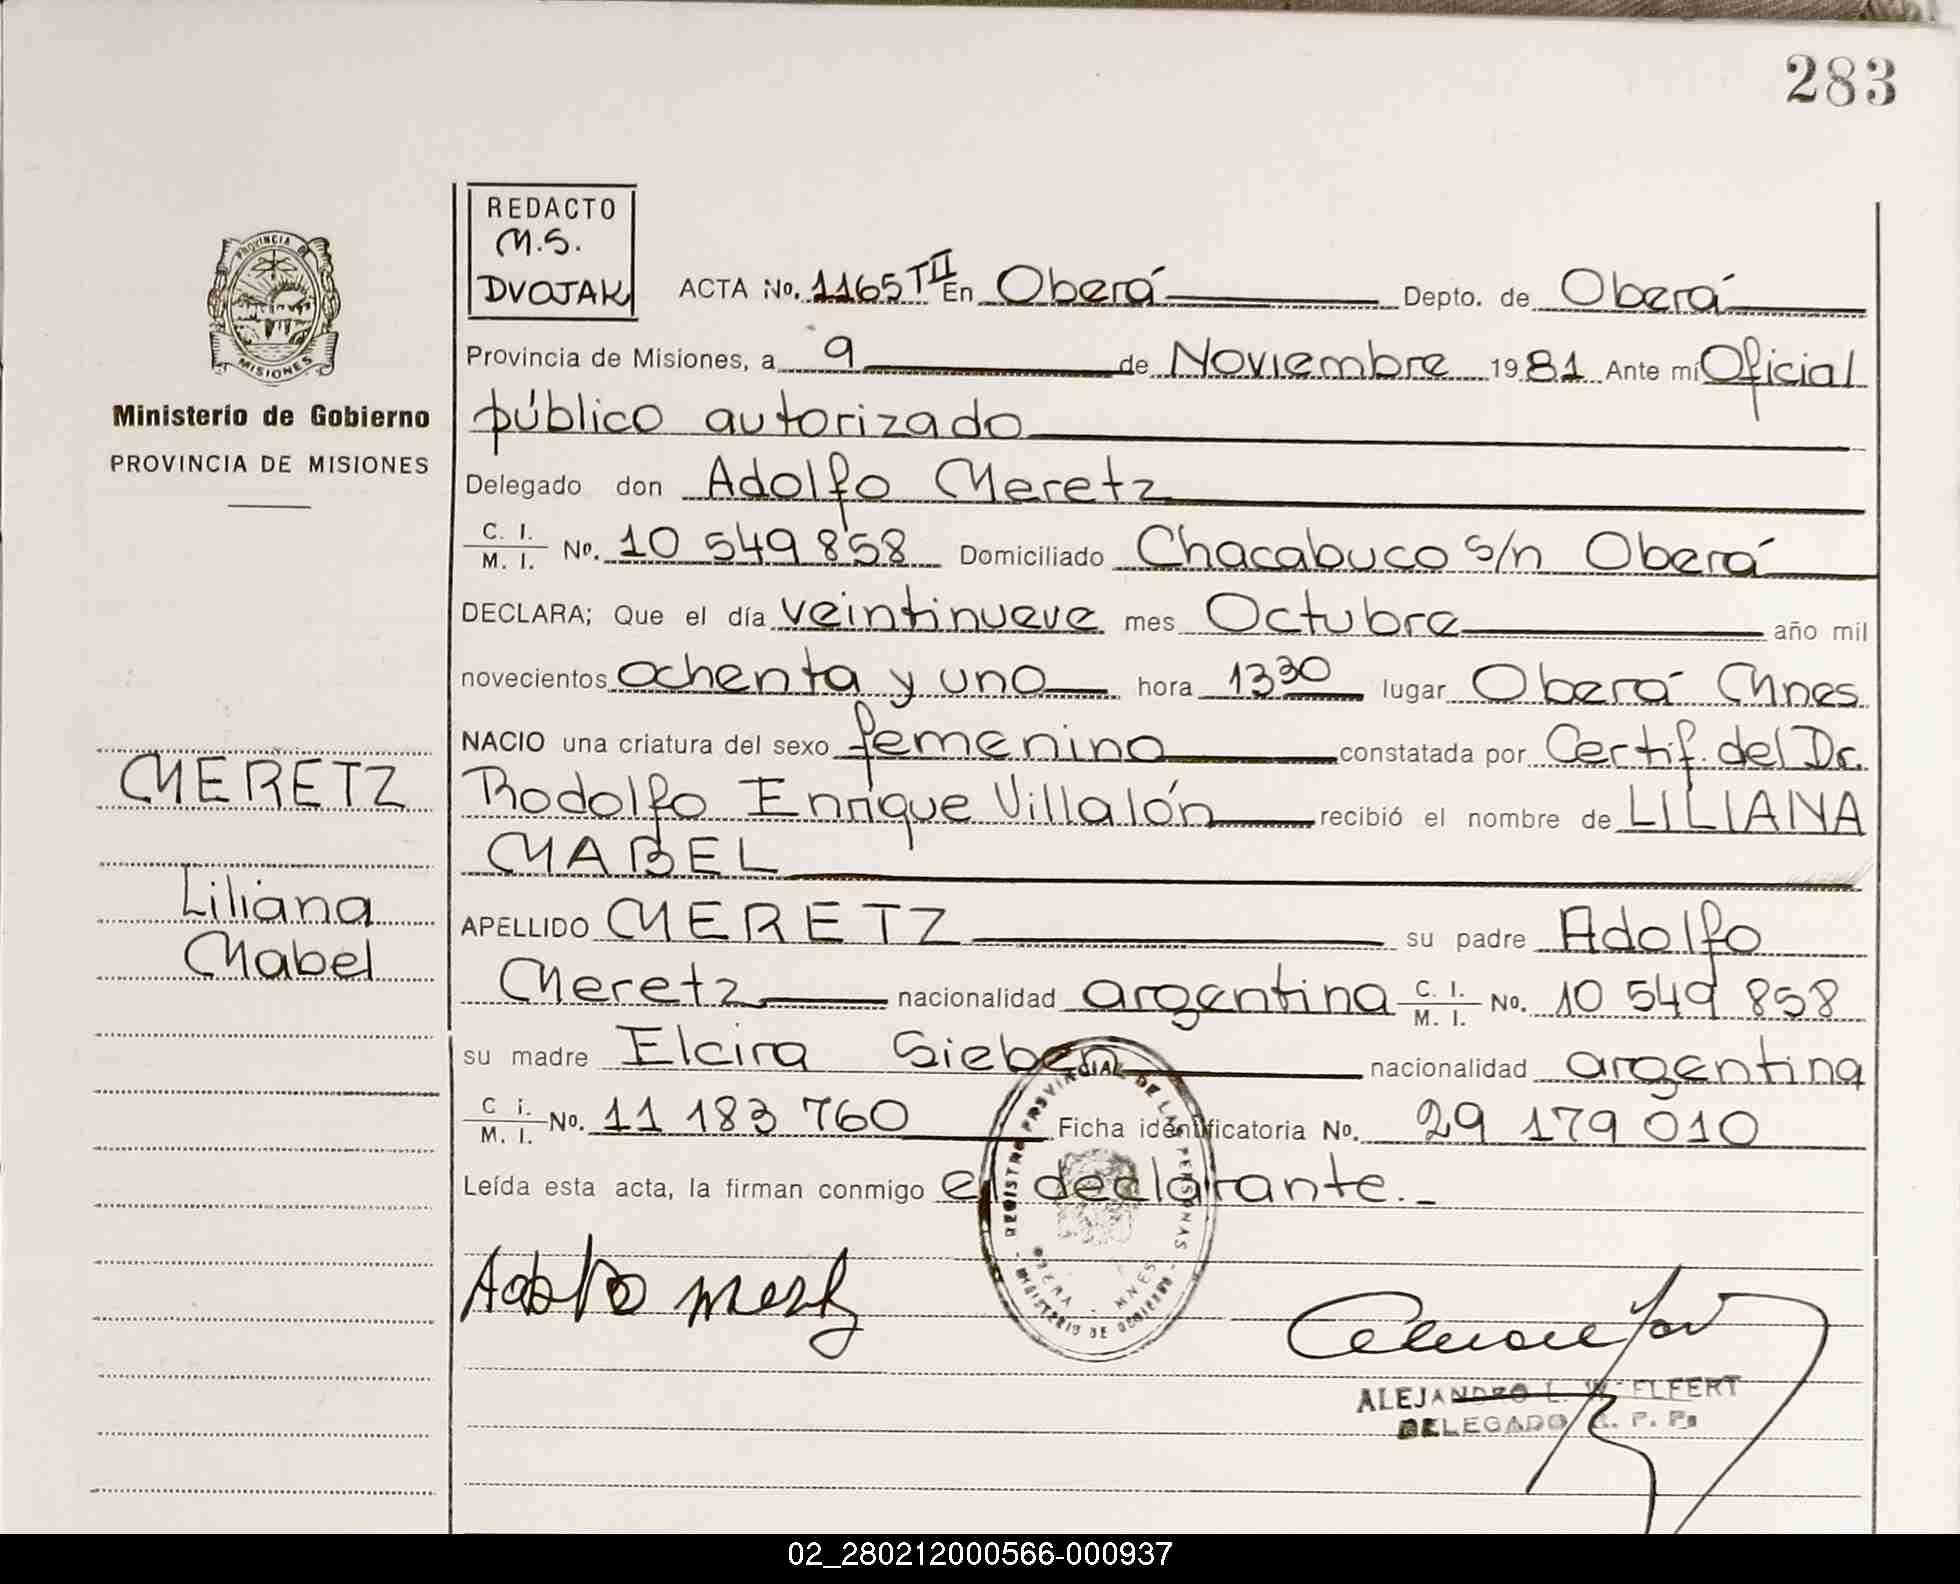 283
REDACTO
M.S.
DVOJAK
ACTA No. 1165 TII En Oberá Depto. de Oberá
Provincia de Misiones, a 9 de Noviembre 1981 Ante mí Oficial
público autorizado
Delegado don Adolfo Meretz
C. I. / M. I. No. 10 549 858 Domiciliado Chacabuco s/n Oberá
DECLARA; Que el día veintinueve mes Octubre año mil
novecientos ochenta y uno hora 13 30 lugar Oberá Mnes.
NACIO una criatura del sexo femenino constatada por Certif. del Dr.
Rodolfo Enrique Villalón recibió el nombre de LILIANA
MABEL
APELLIDO MERETZ su padre Adolfo
Meretz nacionalidad argentina C. I. / M. I. No. 10 549 858
su madre Elcira Sieben nacionalidad argentina
C i. / M. I. No. 11 183 760 Ficha identificatoria No. 29 179 010
Leída esta acta, la firman conmigo el declarante.
PROVINCIA DE
MISIONES
Ministerio de Gobierno
PROVINCIA DE MISIONES
MERETZ
Liliana
Mabel
REGISTRO PROVINCIAL DE LAS PERSONAS
OBERA - MNES
MINISTERIO DE GOBIERNO
Adolfo
ALEJANDRO L. W. ELFERT
DELEGADO R. P. Ps
02_280212000566-000937